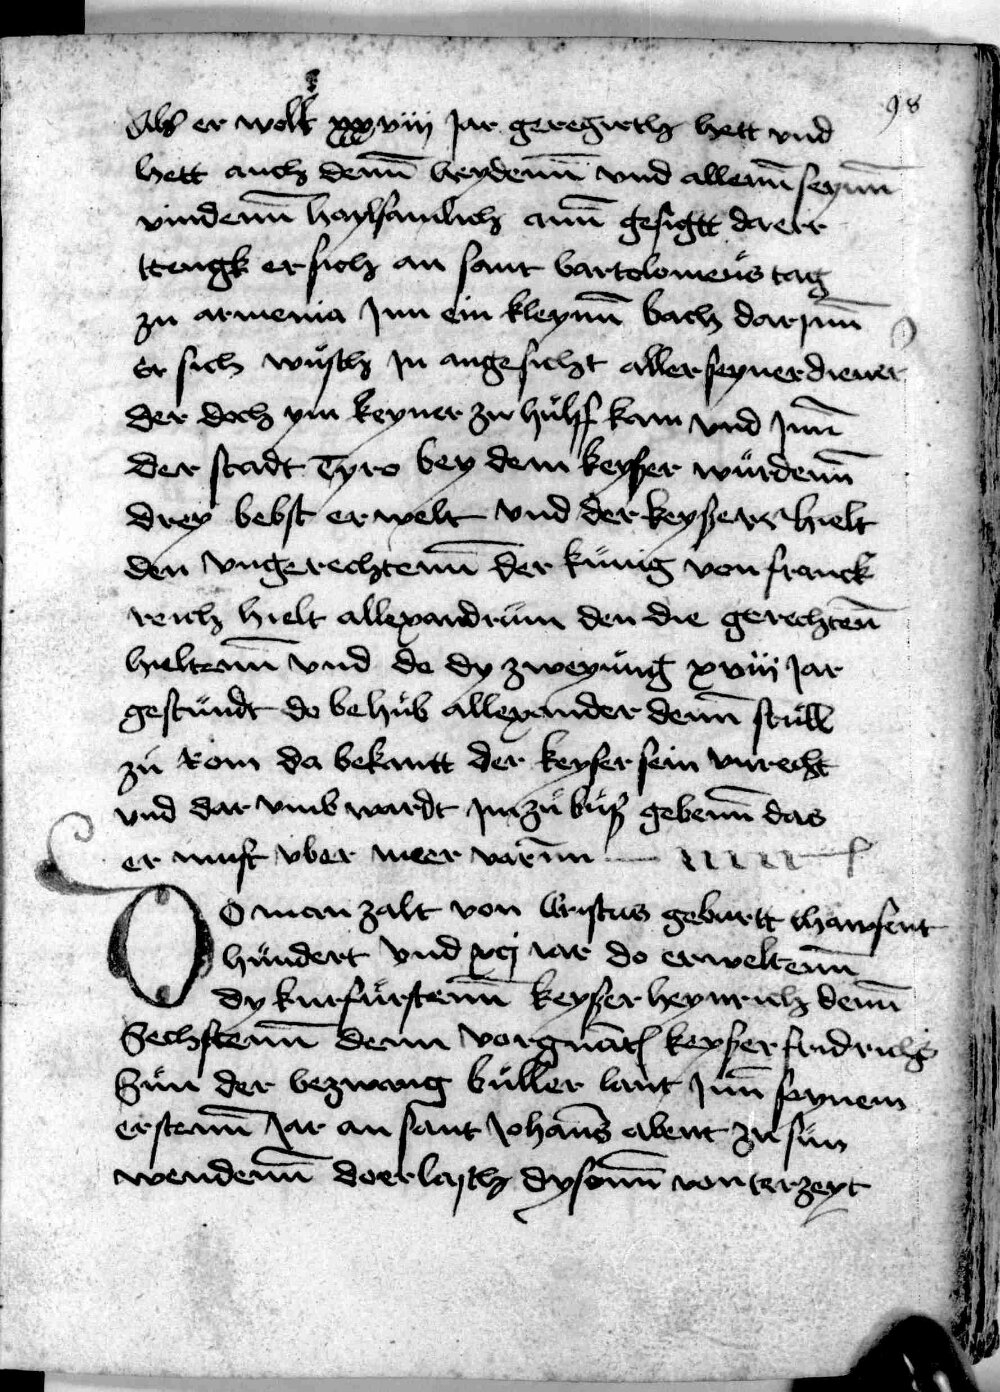 98
Als er wolt xxxviij Jar geregirth hett vnd
hett auch denn heydenn vnd allenn seynn
vindenn haylsamlich ann gesigtt da er
trengk er sich an sant bartolomeus tag
zu armenia Jnn ein kleynn bach darjnn
Er sich wusch Jn angesicht aller seyner diener
der doch ym keyner zu hulff kam vnd Jnn
der stadt Tyro bey dem keyser wurdenn
drey bebst erwelt vnd der keyser hielt
den vngerechtenn der kunig von franck
reich hielt allexandrum den die gerechtenn
hieltenn vnd do dy zweyung xviij Jar
gestundt do behub allexander denn stull
zu Rom da bekantt der keyser sein vnrecht
vnd dar vmb wardt jm zu buß gebenn das
er must vber meer varnn
DO man zalt von Cristus geburtt thawsent
hundert vnd xcj iar do erweltenn
dy kurfurstenn keyser heynrich denn
Sechstenn denn vorgnant keyser fridrichs
Sun der bezwang buller lant Jnn seynem
erstenn Jar an sant Johanns abent zu sun
wendenn do erlasch dy sonn von terzeyt